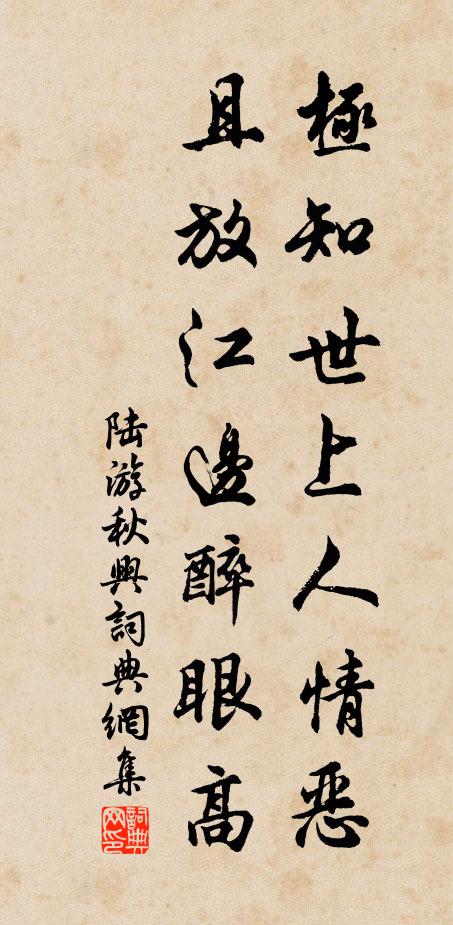 極知世上人情惡
且放江邊醉眼高
陆游秋興詞典網集
詞典网印